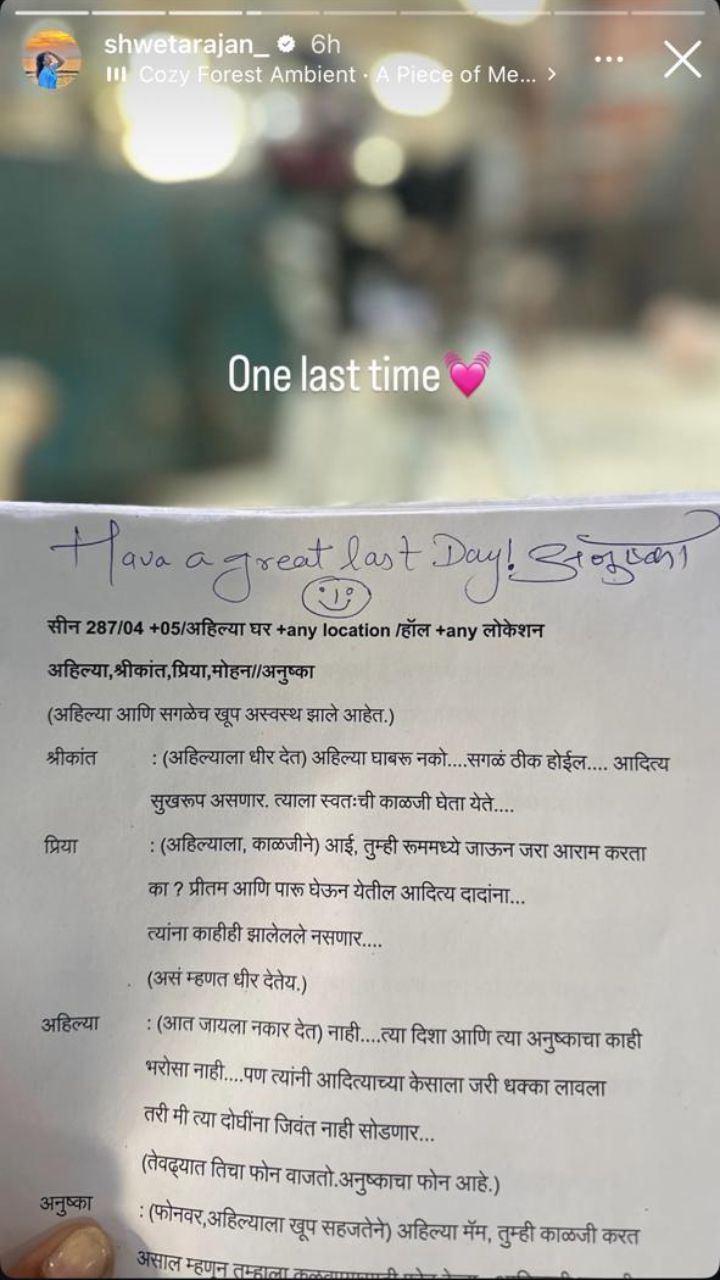 shwetarajan_ 6h
Cozy Forest Ambient · A Piece of Me... >
One last time
Hava a great last Day! अनुष्का
सीन 287/04 +05/अहिल्या घर +any location /हॉल +any लोकेशन
अहिल्या,श्रीकांत,प्रिया,मोहन//अनुष्का
(अहिल्या आणि सगळेच खूप अस्वस्थ झाले आहेत.)
श्रीकांत : (अहिल्याला धीर देत) अहिल्या घाबरू नको....सगळं ठीक होईल.... आदित्य
सुखरूप असणार. त्याला स्वतःची काळजी घेता येते....
प्रिया : (अहिल्याला, काळजीने) आई, तुम्ही रूममध्ये जाऊन जरा आराम करता
का ? प्रीतम आणि पारू घेऊन येतील आदित्य दादांना...
त्यांना काहीही झालेलले नसणार....
(असं म्हणत धीर देतेय.)
अहिल्या : (आत जायला नकार देत) नाही....त्या दिशा आणि त्या अनुष्काचा काही
भरोसा नाही....पण त्यांनी आदित्याच्या केसाला जरी धक्का लावला
तरी मी त्या दोघींना जिवंत नाही सोडणार...
(तेवढ्यात तिचा फोन वाजतो.अनुष्काचा फोन आहे.)
अनुष्का : (फोनवर,अहिल्याला खूप सहजतेने) अहिल्या मॅम, तुम्ही काळजी करत
असाल म्हणून तुम्हाला